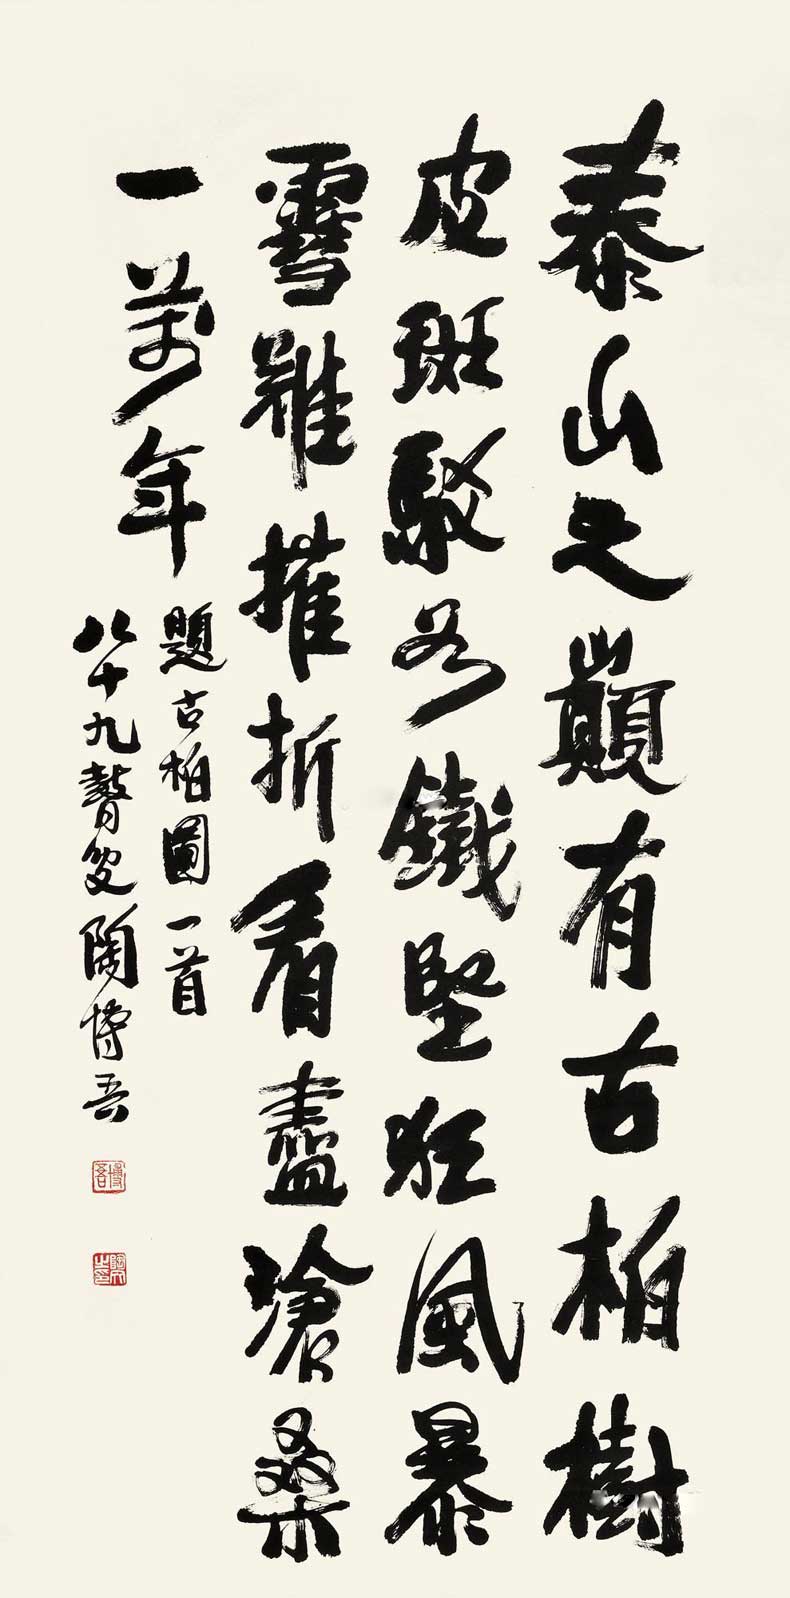 泰山之巔有古柏樹
皮斑駁為鐵堅狂風暴
雪難摧折看盡滄桑
一萬年
題古柏圖一首
八十九聾叟陶博吾
博吾